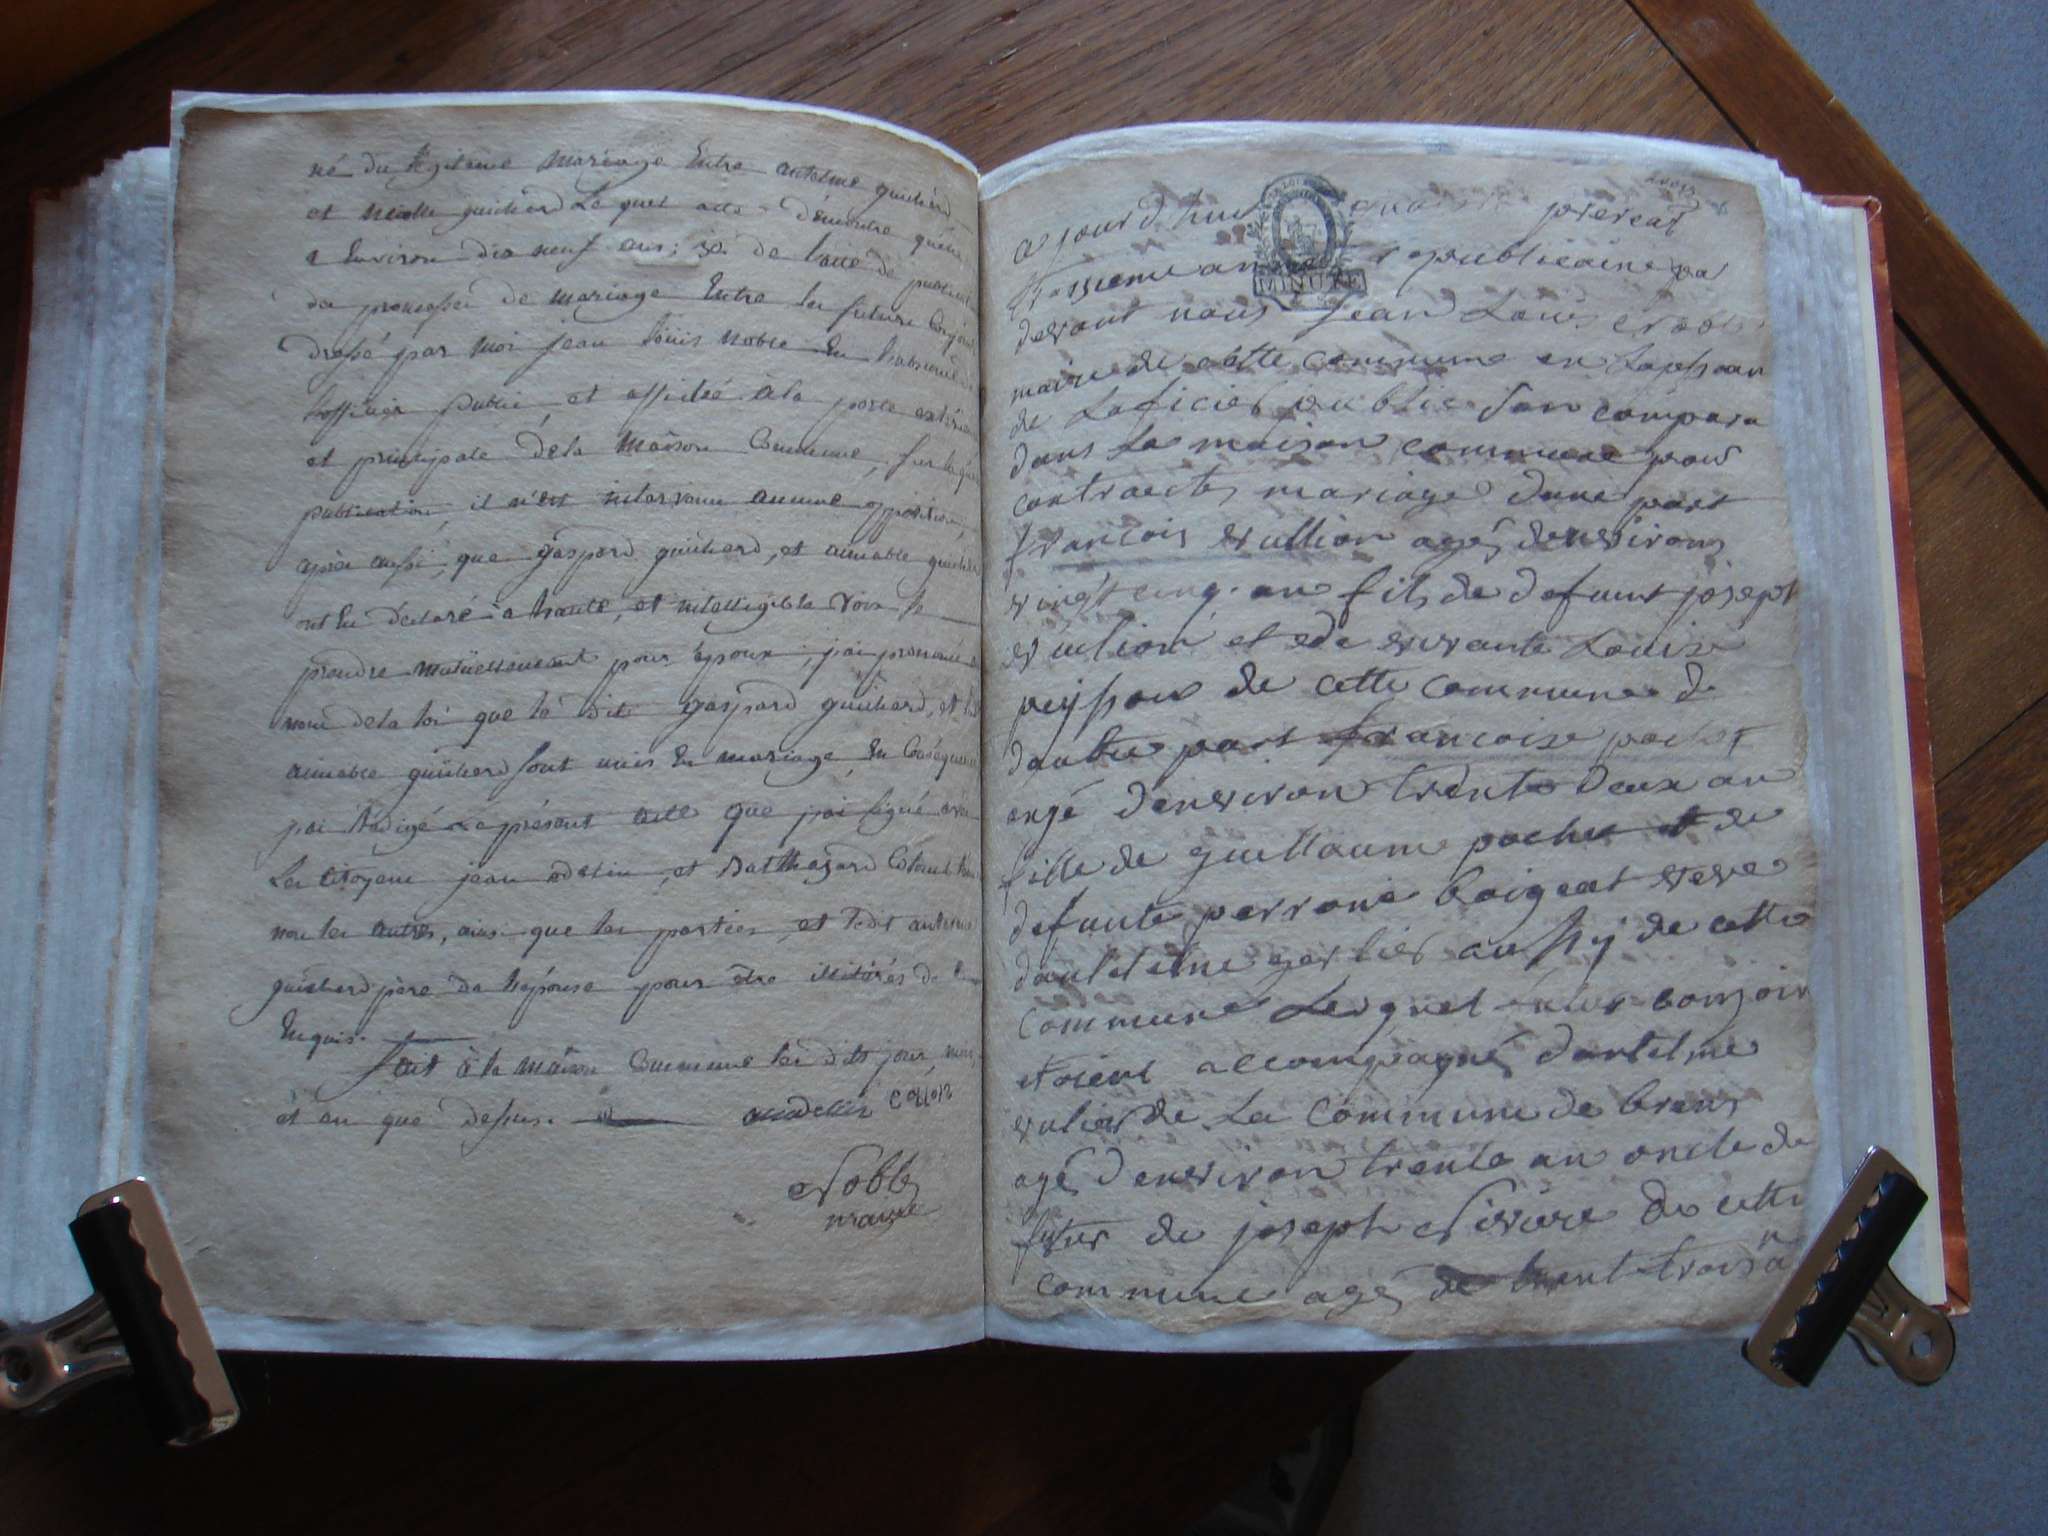 né du légitime mariage Entre antelme guichard
et guichard Le quel acte démontre quelle
a Environ dix neuf ans; 3o. de l'acte de
de promesses de mariage Entre les futurs Conjoints
Dressé par moi jean louis noble En
l'officier public, et affichée à la porte
et principale de la maison Commune, sur laquelle
publication, il n'est intervenu aucune opposition,
après aussi, que gaspard guichard, et aimable guichard
ont Eu declaré à haute, et intelligible voix se
prendre mutuellement pour Epoux, j'ai prononcé
nom de la loi que le dit gaspard guichard, et
aimable guichard sont unis En mariage, En Conséquence
jai Rédigé Le présent acte que jai signé avec
Les citoyens jean et Balthazard
non les autres, ainsi que les parties, et ledit antelme
guichard père de l'épouse pour être illitérés de
Enquis.
Fait à la maison Commune les dits jour, mois,
et an que dessus.
Noble
maire
a jour d hui prereal
troisieme an republicaine par
devant nous Jean Louis Noble
maire de cette commune en
de Laficier publie son compara
dans La maison commune pour
contractes mariage dune part
francois vullion agé denvirons
vingt cinq an fils de defunt joseph
vullion et de vivante Louise
peyssou de cette commune de
dautre part francoise pochet
agé denviron trente deux an
fille de guillaume pochet et de
defunte perrone boigeat veve
dantelme aussy de cette
commune Lesquel
etoient accompagné dantelme
de La commune de brens
agé denviron trente an oncle du
futur de joseph de cette
commune agé de trent trois an
MINUTE